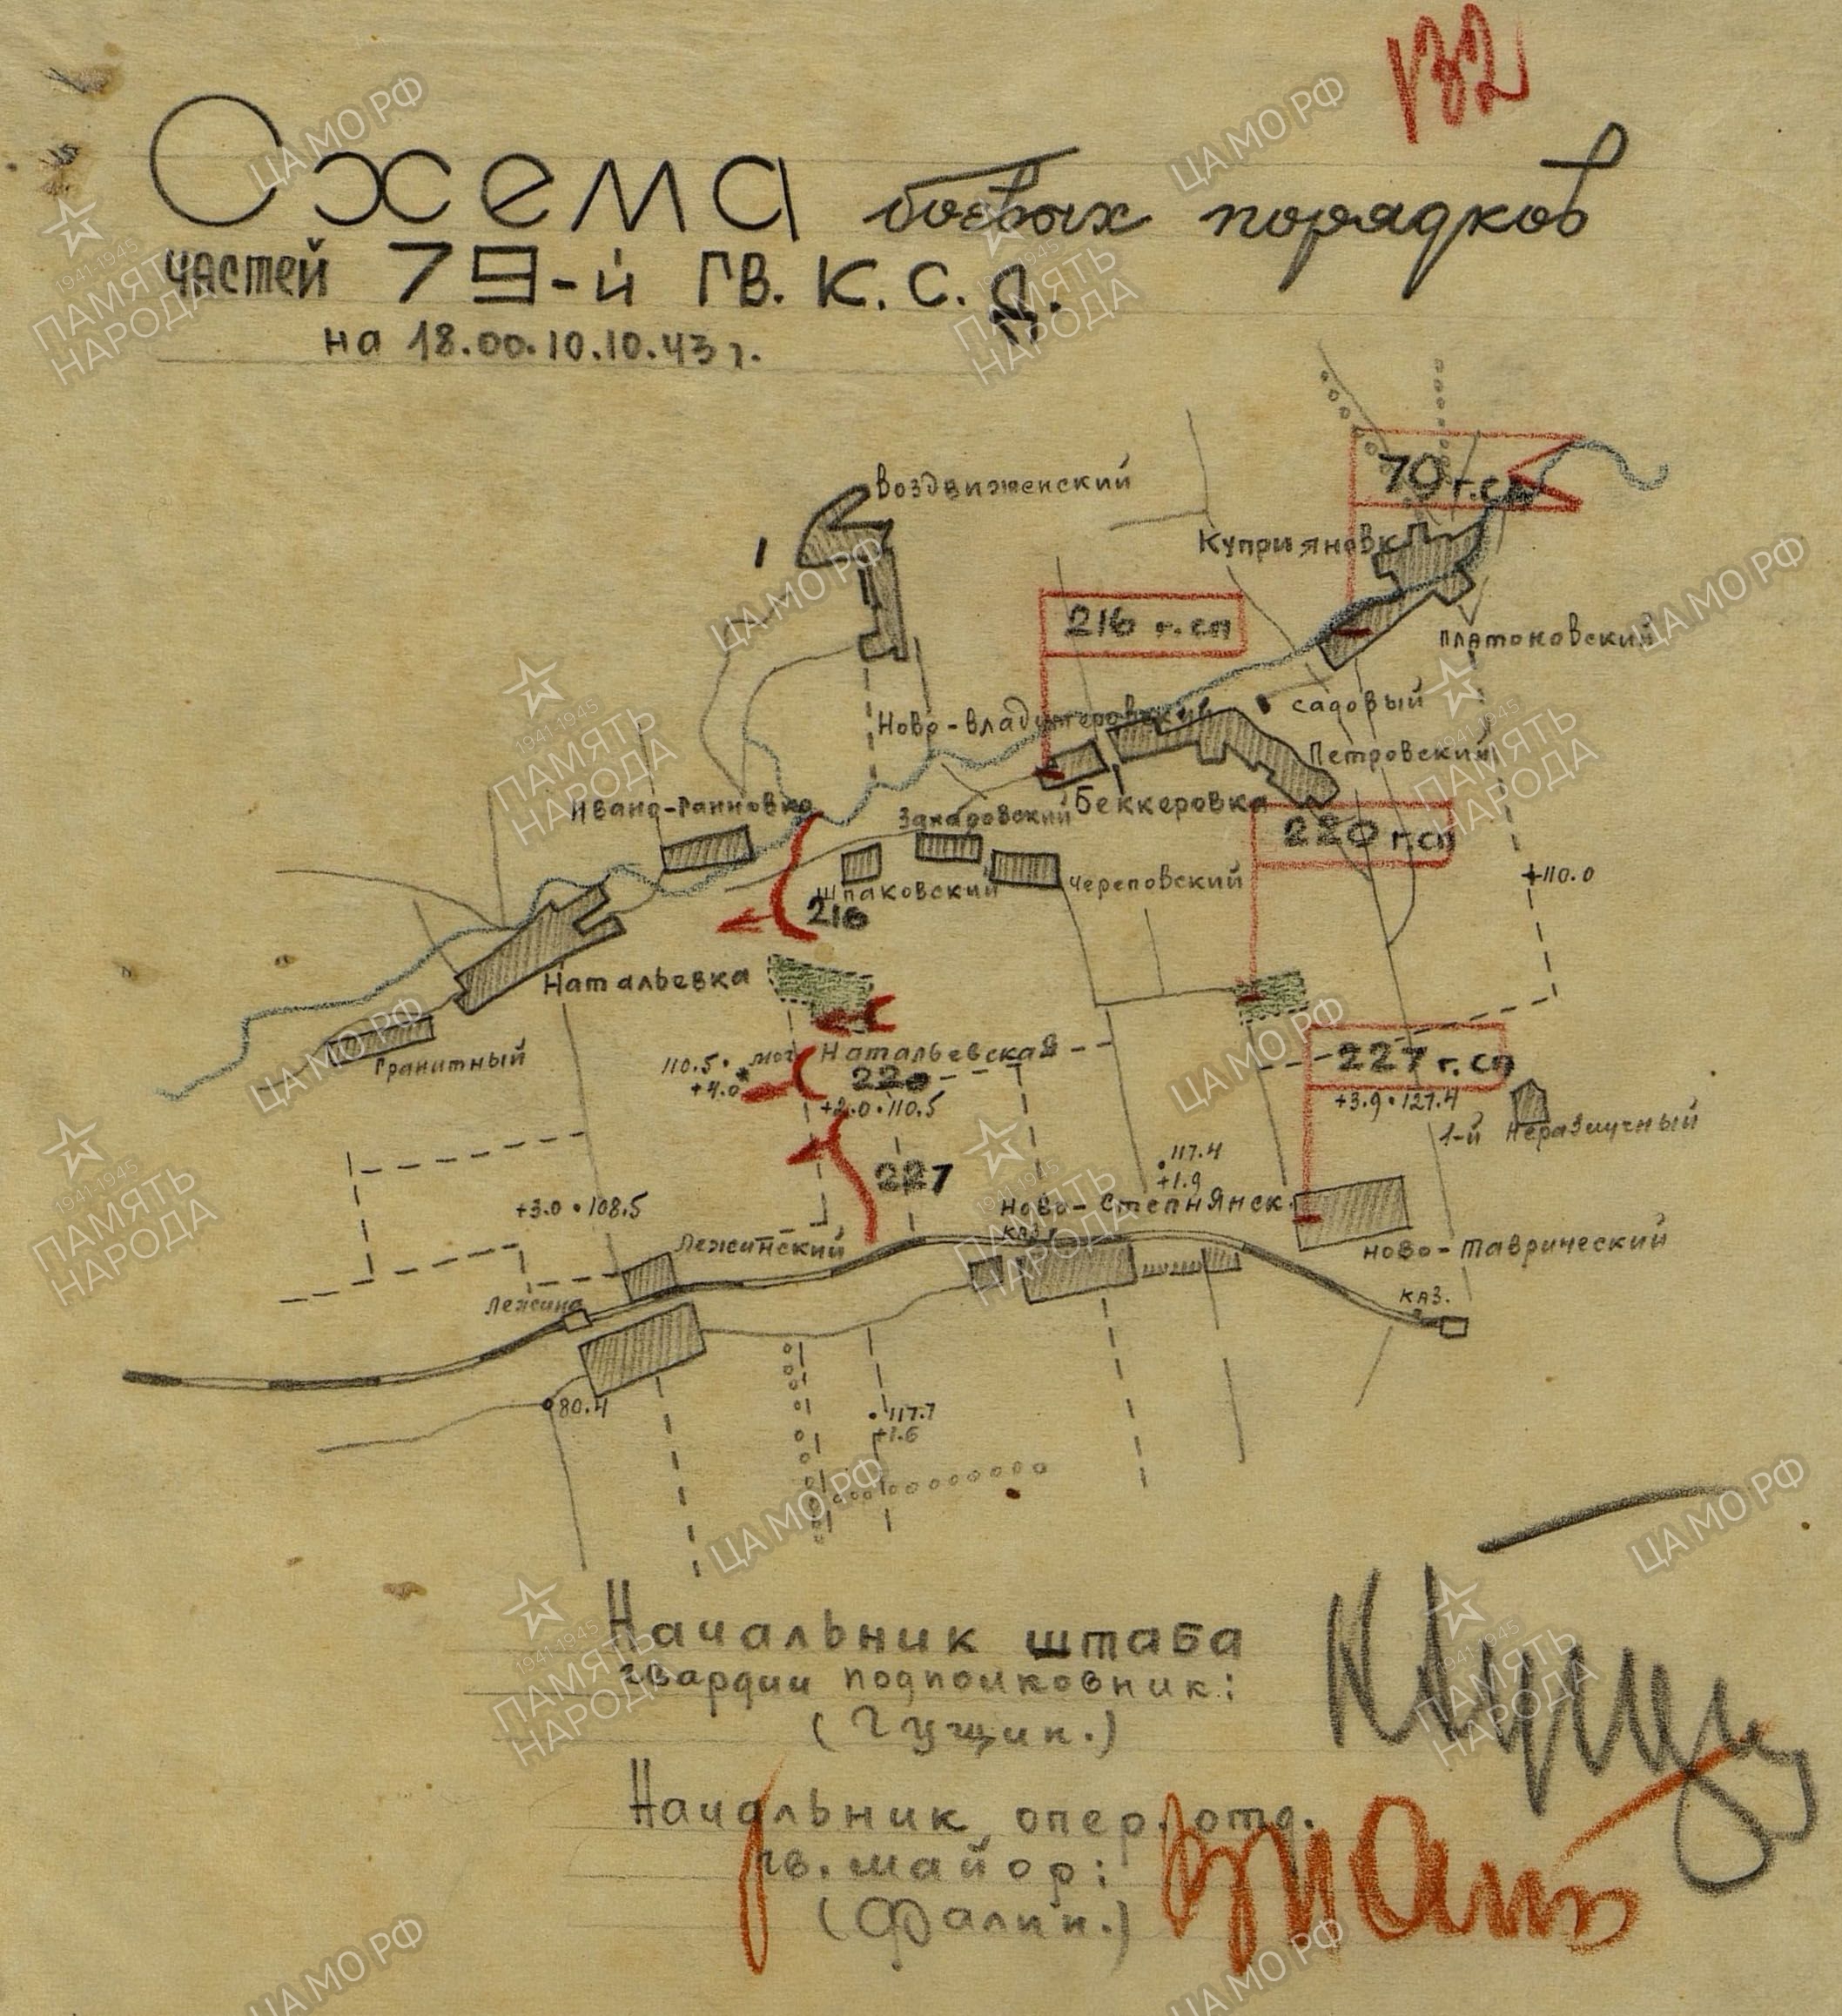 132
Схема боевых порядков
частей 79-й ГВ. К. С. Д.
на 18.00. 10.10.43 г.
Воздвиженский
70 г.сп
Куприяновк
216 г.сп
Платоновский
Садовый
Ново-владимеровский
Петровский
Ивано-Ганновка
Захаровский
Беккеровка
220 г.сп
Шпаковский
Череповский
+110.0
216
Натальевка
Гранитный
110.5 • мог
+4.0
Натальевская
220
+2.0 • 110.5
227 г.сп
+3.9 • 127.4
1-й Неразлучный
227
117.4
+1.9
+3.0 • 108.5
Ново-Степнянск.
каз.
Лежинский
Ново-Таврический
Лежино
каз.
80.4
117.7
+1.6
Начальник штаба
гвардии подполковник:
(Гущин.)
Начальник опер. отд.
гв. майор:
(Фалин.)
ЦАМО РФ
1941-1945
ПАМЯТЬ
НАРОДА